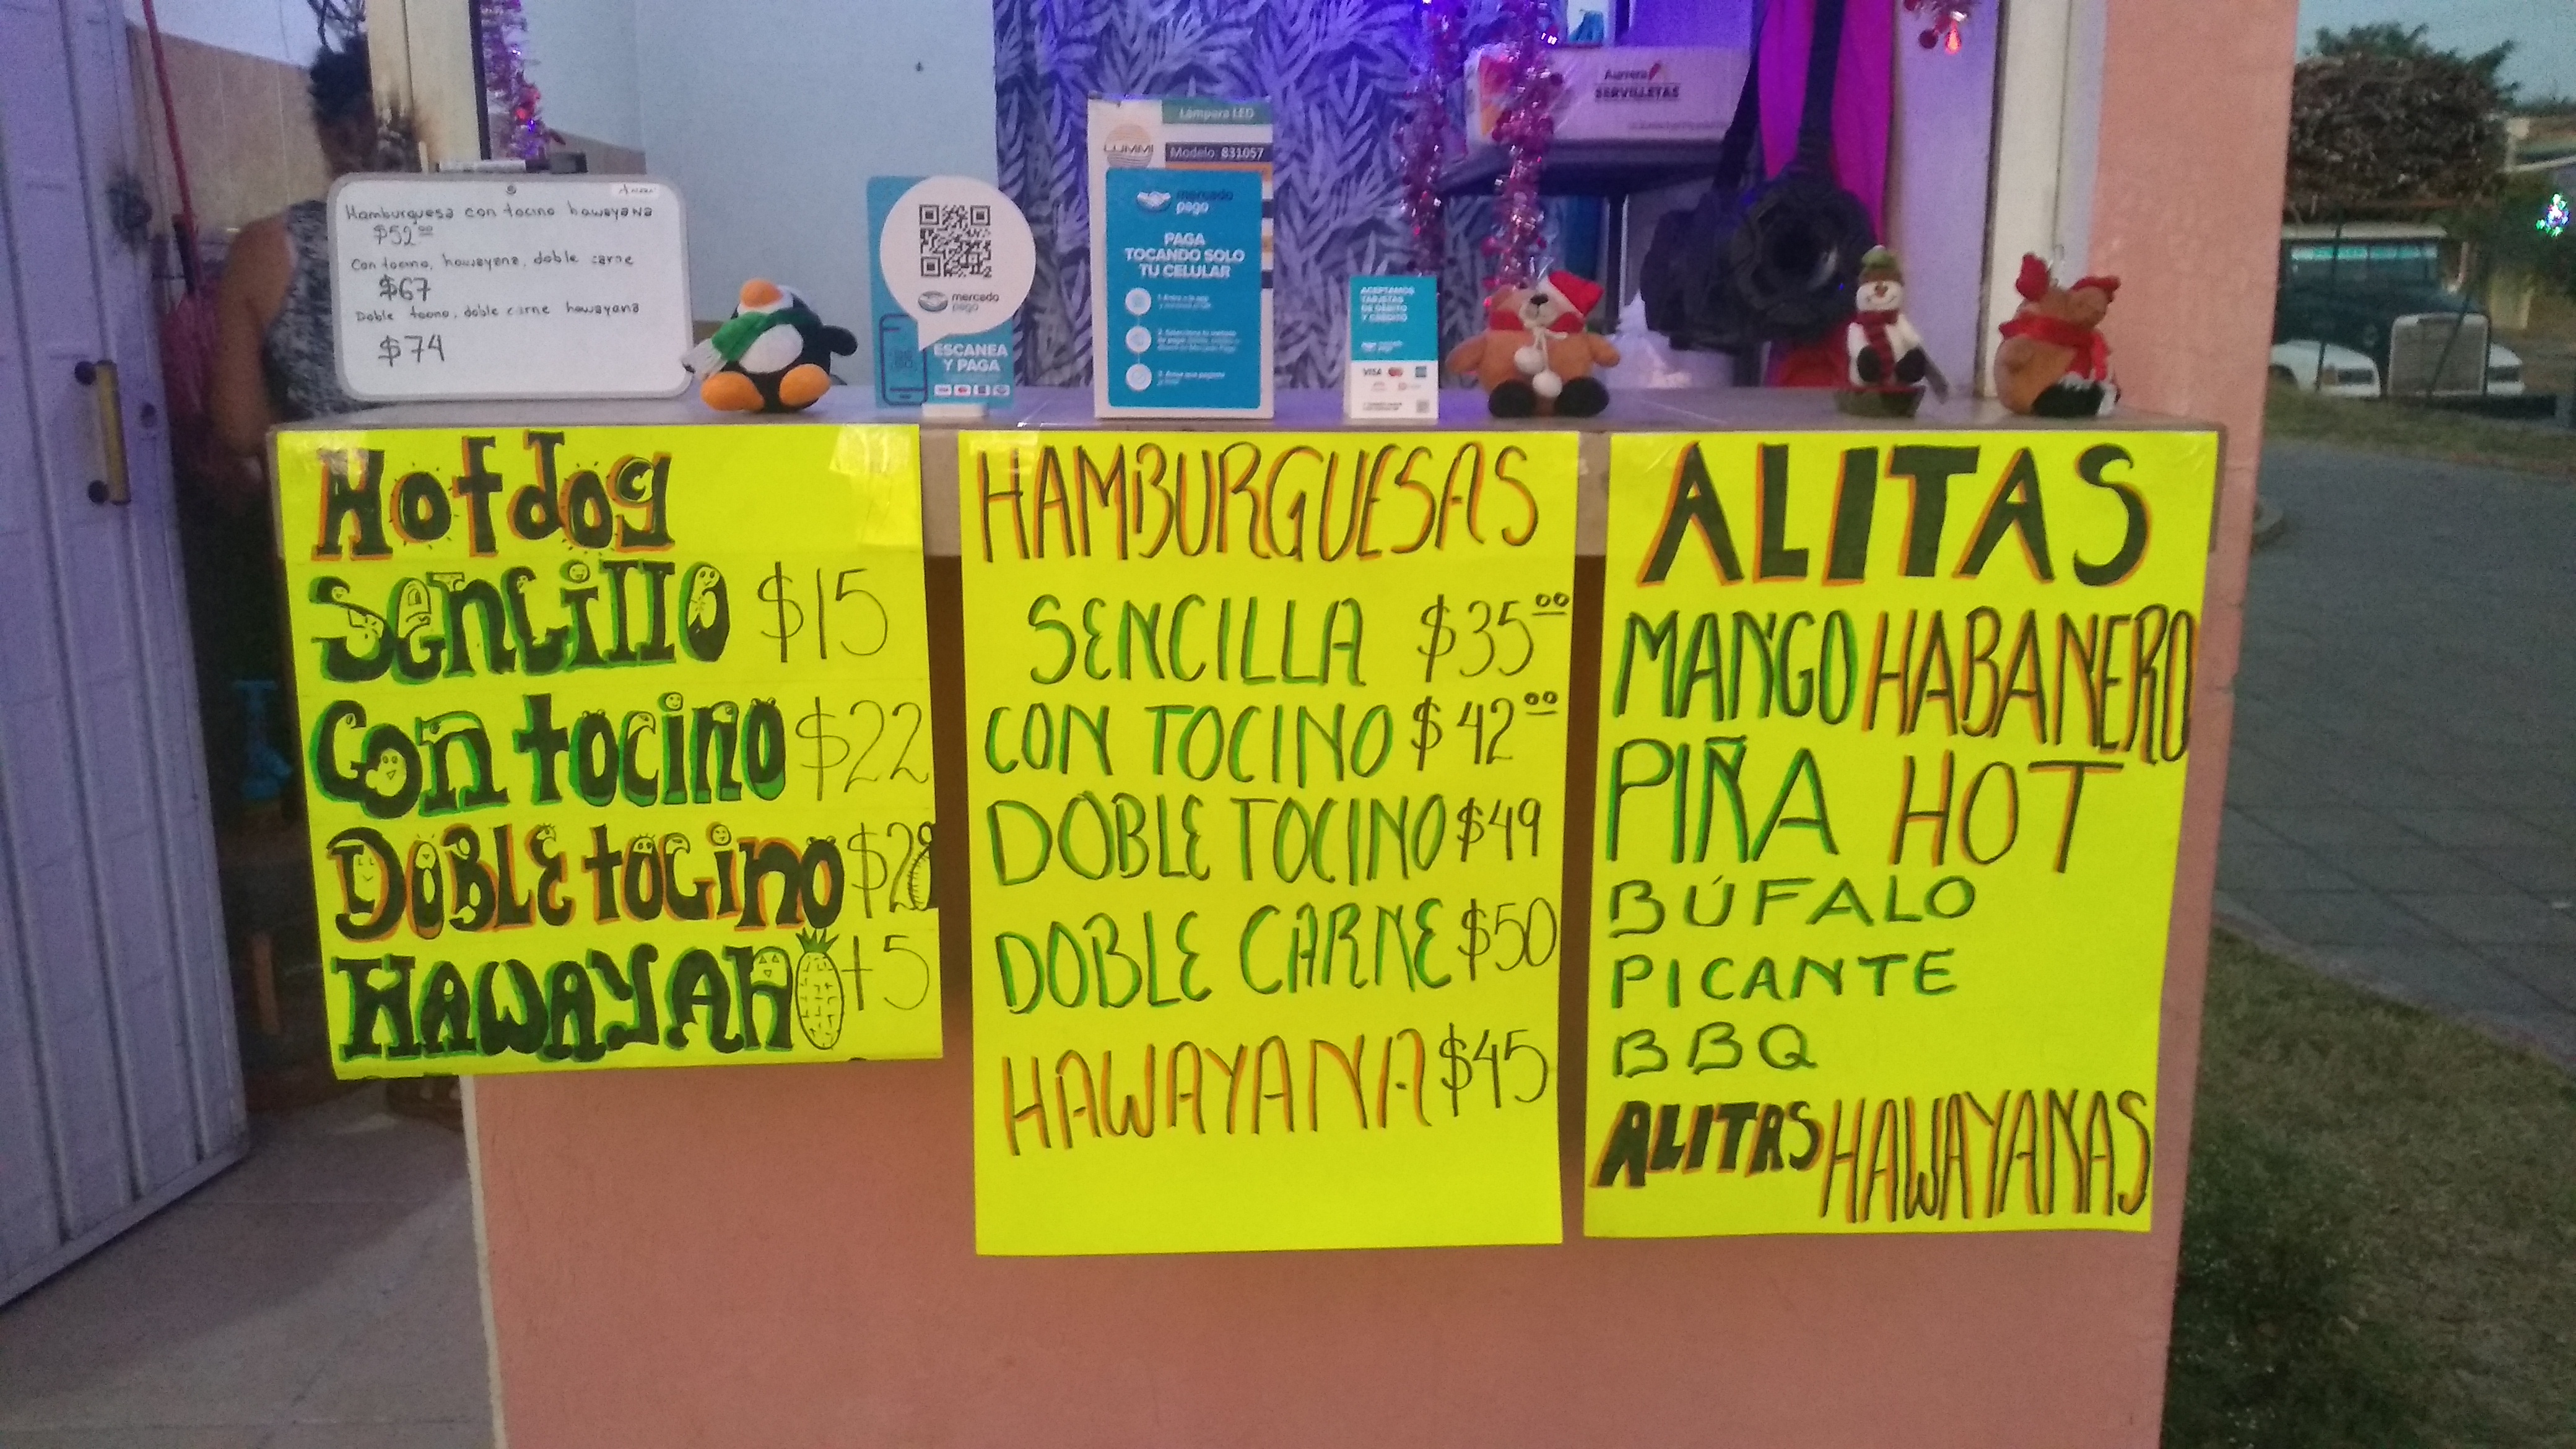 Hamburguesa con tocino hawayana
$52⁰⁰
Con tocino, hawayana, doble carne
$67
Doble tocino, doble carne hawayana
$74
mercado
pago
ESCANEA
Y PAGA
Lámpara LED
LUMMI
Modelo: 831057
mercado
pago
PAGA
TOCANDO SOLO
TU CELULAR
ACEPTAMOS
TARJETAS
DE DÉBITO
Y CRÉDITO
mercado
pago
VISA
Aurrera
SERVILLETAS
Hotdog
Sencillo $15
Con tocino $22
DOBLE tocino $28
HAWAYAN +5
HAMBURGUESAS
SENCILLA $35⁰⁰
CON TOCINO $42⁰⁰
DOBLE TOCINO $49
DOBLE CARNE $50
HAWAYANA $45
ALITAS
MANGO HABANERO
PIÑA HOT
BÚFALO
PICANTE
BBQ
ALITAS HAWAYANAS